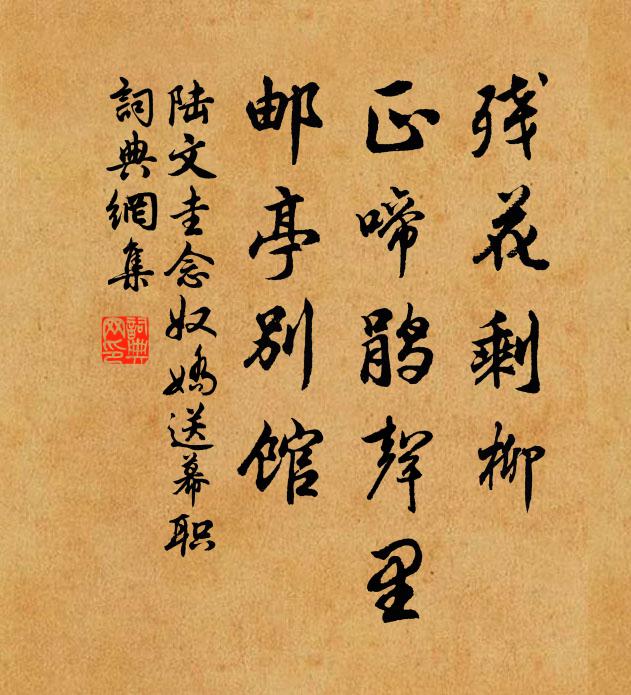 残花剩柳
正啼鹃聲里
邮亭别馆
陆文圭念奴嬌送幕职
詞典網集
詞典网印